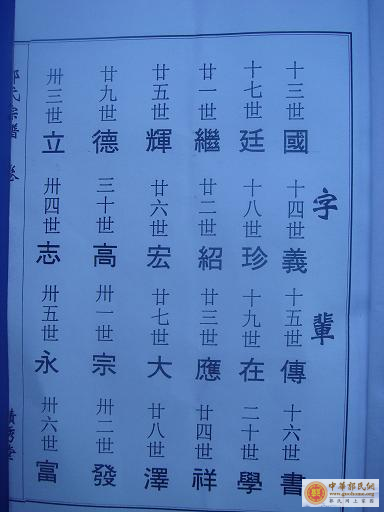 字輩
十三世國 十四世義 十五世傳 十六世書
十七世廷 十八世珍 十九世在 二十世學
廿一世繼 廿二世紹 廿三世應 廿四世祥
廿五世輝 廿六世宏 廿七世大 廿八世澤
廿九世德 三十世高 卅一世宗 卅二世發
卅三世立 卅四世志 卅五世永 卅六世富
氏宗譜 卷
中華郭氏網
郭氏網上家園